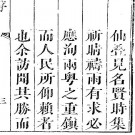 仙善見名賢時集
祈晴禱雨有求必
應洵兩學之重鎮
而人民所仰賴者
也余訪問其勝而
序
三